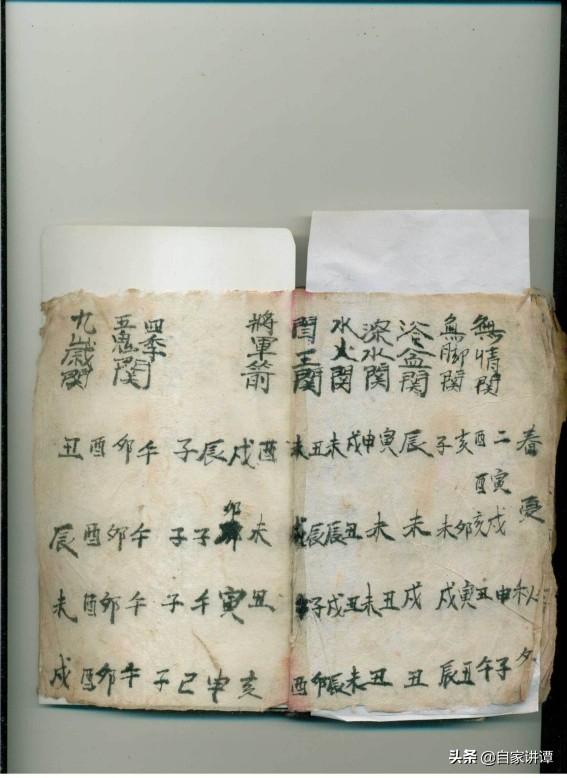 春夏秋
無情関
二寅戌申子
酉酉亥丑午
無脚関
亥卯寅丑
子未戌辰
浴盆関
辰未戌丑
深水関
寅未丑丑
申未
水火関
戌丑丑未
未辰戌辰
閻王関
丑辰子卯
未酉
將軍箭
酉未丑亥
戌卯寅申
辰子午巳
子子子子
四季
五鬼関
午午午午
卯卯卯卯
酉酉酉酉
九歲関
丑辰未戌
头条 @自家讲谭